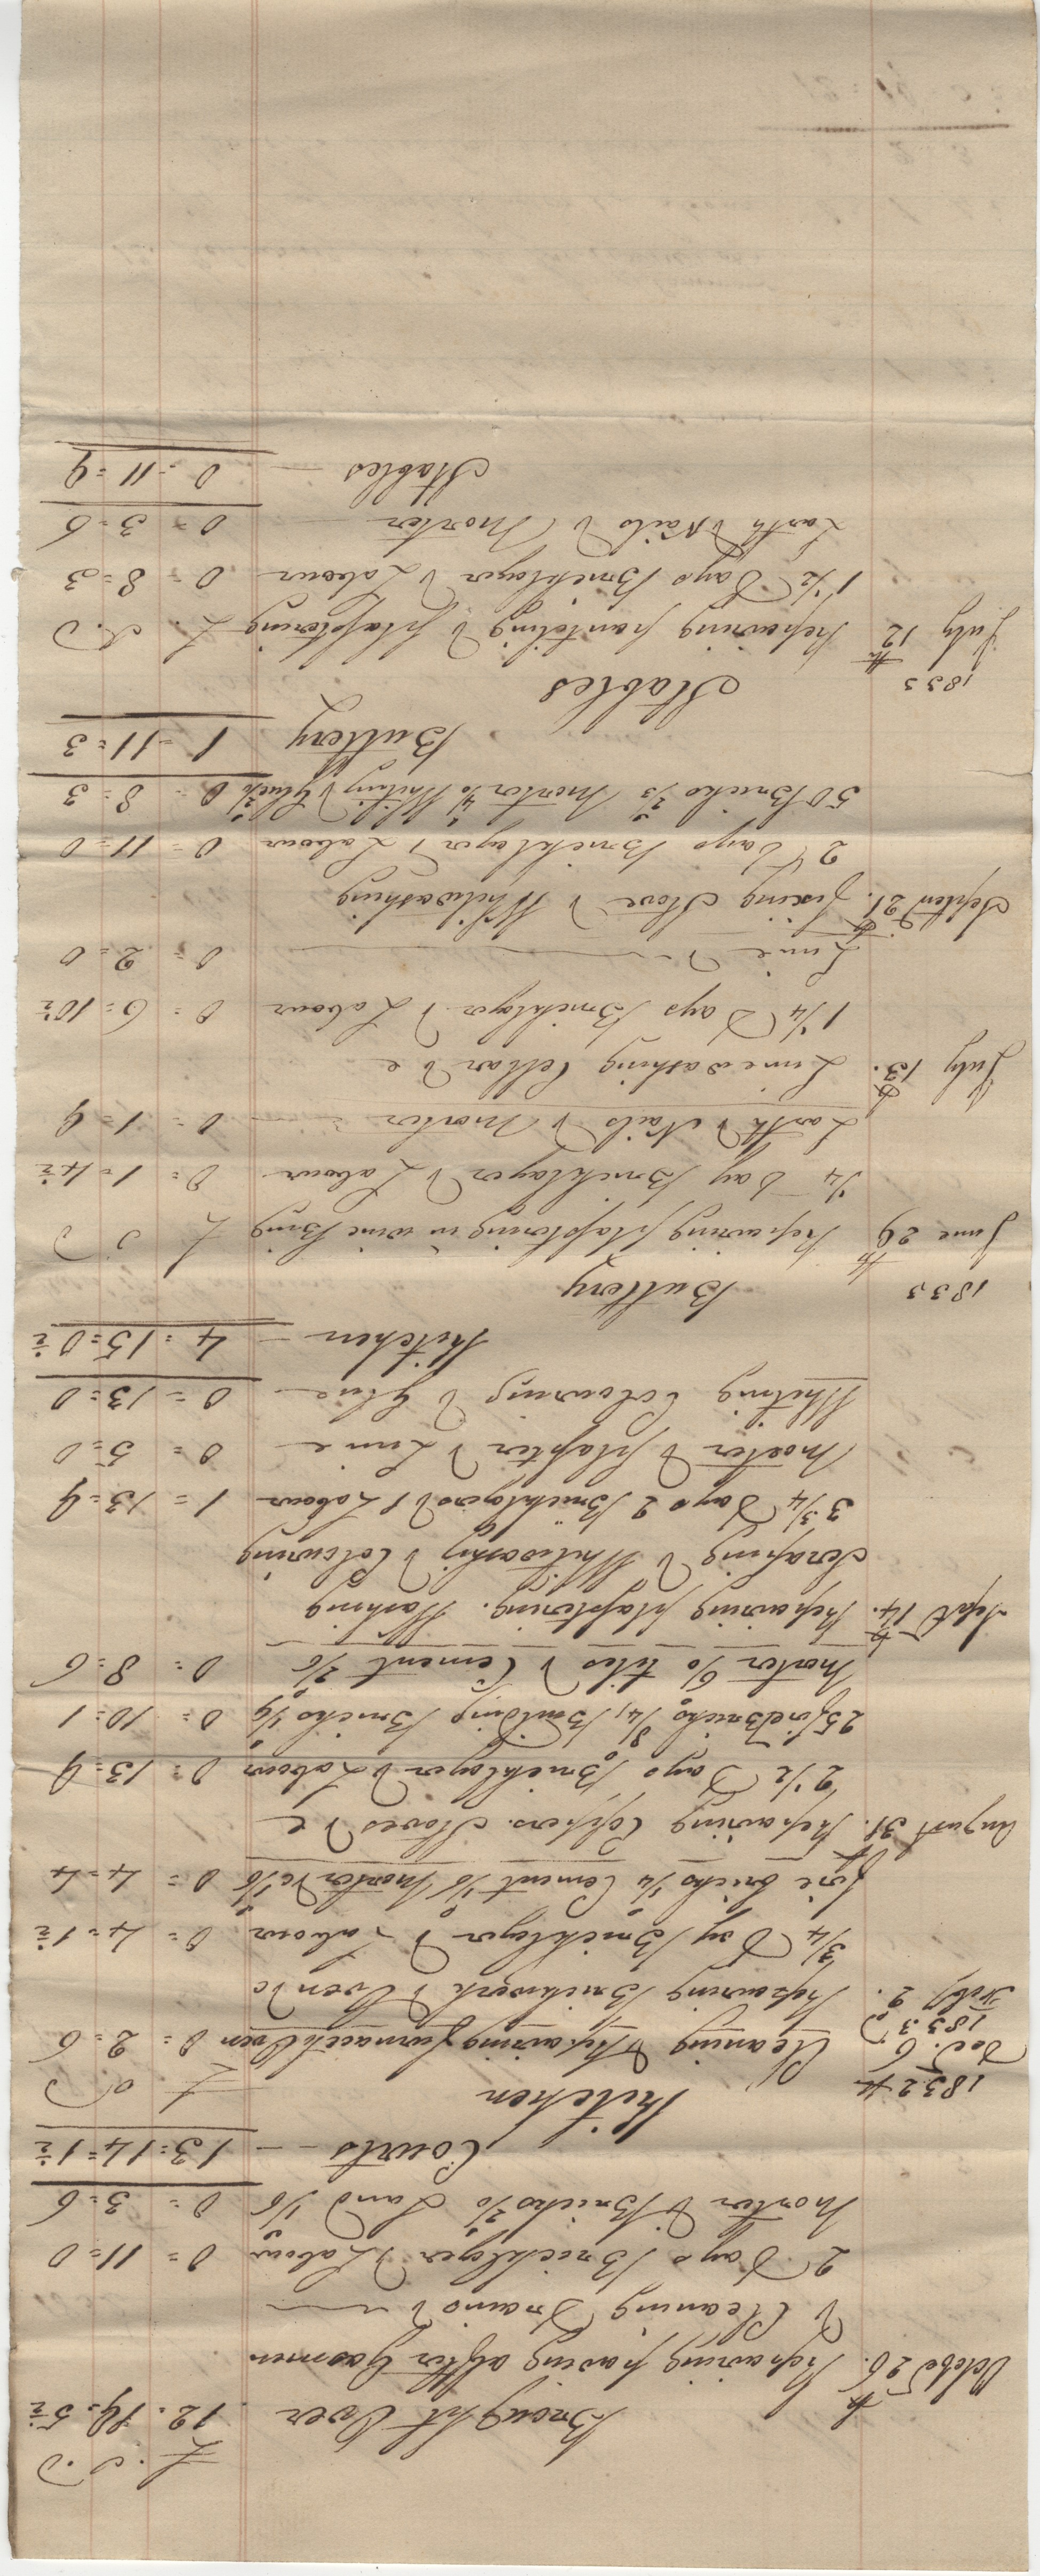 £ : S : D
Brought Over 12 : 19 : 5½
Octobr 26th Repairing paving after Gasmen
& Cleaning Drains &c
2 Days Bricklayer & Labour 0 = 11 = 0
Morter & Bricks 2/0 Sand 1/6 0 = 3 = 6
Courts 13 = 14 = 1½
Kitchen
1832 £ S D
Dec. 6th Cleaning & Repairing Furnace & Oven 0 = 2 = 6
1833
Feby 2d. Repairing Brickwork & Oven &c
3/4 Day Bricklayer & Labour 0 = 4 = 1½
fire bricks 1/4 Cement 1/6 Morter &c 1/6 0 = 4 = 4
August 31st. Repairing Coppers. Stoves &c
2½ Days Bricklayer & Labour 0 = 13 = 9
25 fire Bricks 8/4, Building Bricks 1/9 0 = 10 = 1
Morter 6/0 tiles & Cement 2/6 0 = 8 = 6
Sept 14th. Repairing plaistering. Washing
Scraping & Whitwashg & Colouring
3 3/4 Days 2 Bricklayers & 1 Labour 1 = 13 = 9
Morter & plaister & Lime 0 = 5 = 0
Whiting Colouring & Glue 0 = 13 = 0
Kitchen 4 = 15 = 0½
Buttery
1833
June 29th Repairing plaistering in wine Bing £ S D
1/4 Day Bricklayer & Labour 0 = 1 = 4½
Larth & Nails & Morter 0 = 1 = 9
July 13th. Limewashing Cellar &c
1 1/4 Days Bricklayer & Labour 0 = 6 = 10½
Lime &c 0 = 2 = 0
Septemr 21st. fixing Stove & Whitwashing
2 Days Bricklayer & Labour 0 = 11 = 0
50 Bricks 2/3 Morter 4/0 Whiting & Glue 2/0 0 = 8 = 3
Buttery 1 = 11 = 3
Stables
1833
July 12th Repairing panteling & plaistering £ . S . D
1½ Days Bricklayer & Labour 0 = 8 = 3
Larth & Nails & Morter 0 = 3 = 6
Stables 0 = 11 = 9